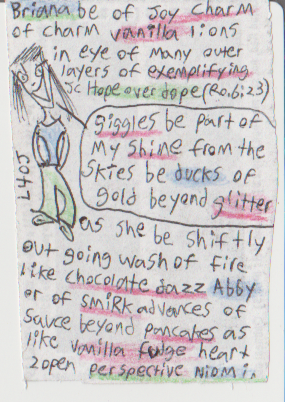 Briana be of Joy Charm
of charm vanilla lions
in eye of many outer
layers of exemplifying
JC Hope over dope (Ro.6:23)
giggles be part of
my shine from the
Skies be ducks of
gold beyond glitter
L405
as she be shiftly
out going wash of fire
like chocolate Jazz Abby
or of smirk advances of
Sauce beyond pancakes as
like vanilla fudge heart
2open perspective Niomi.